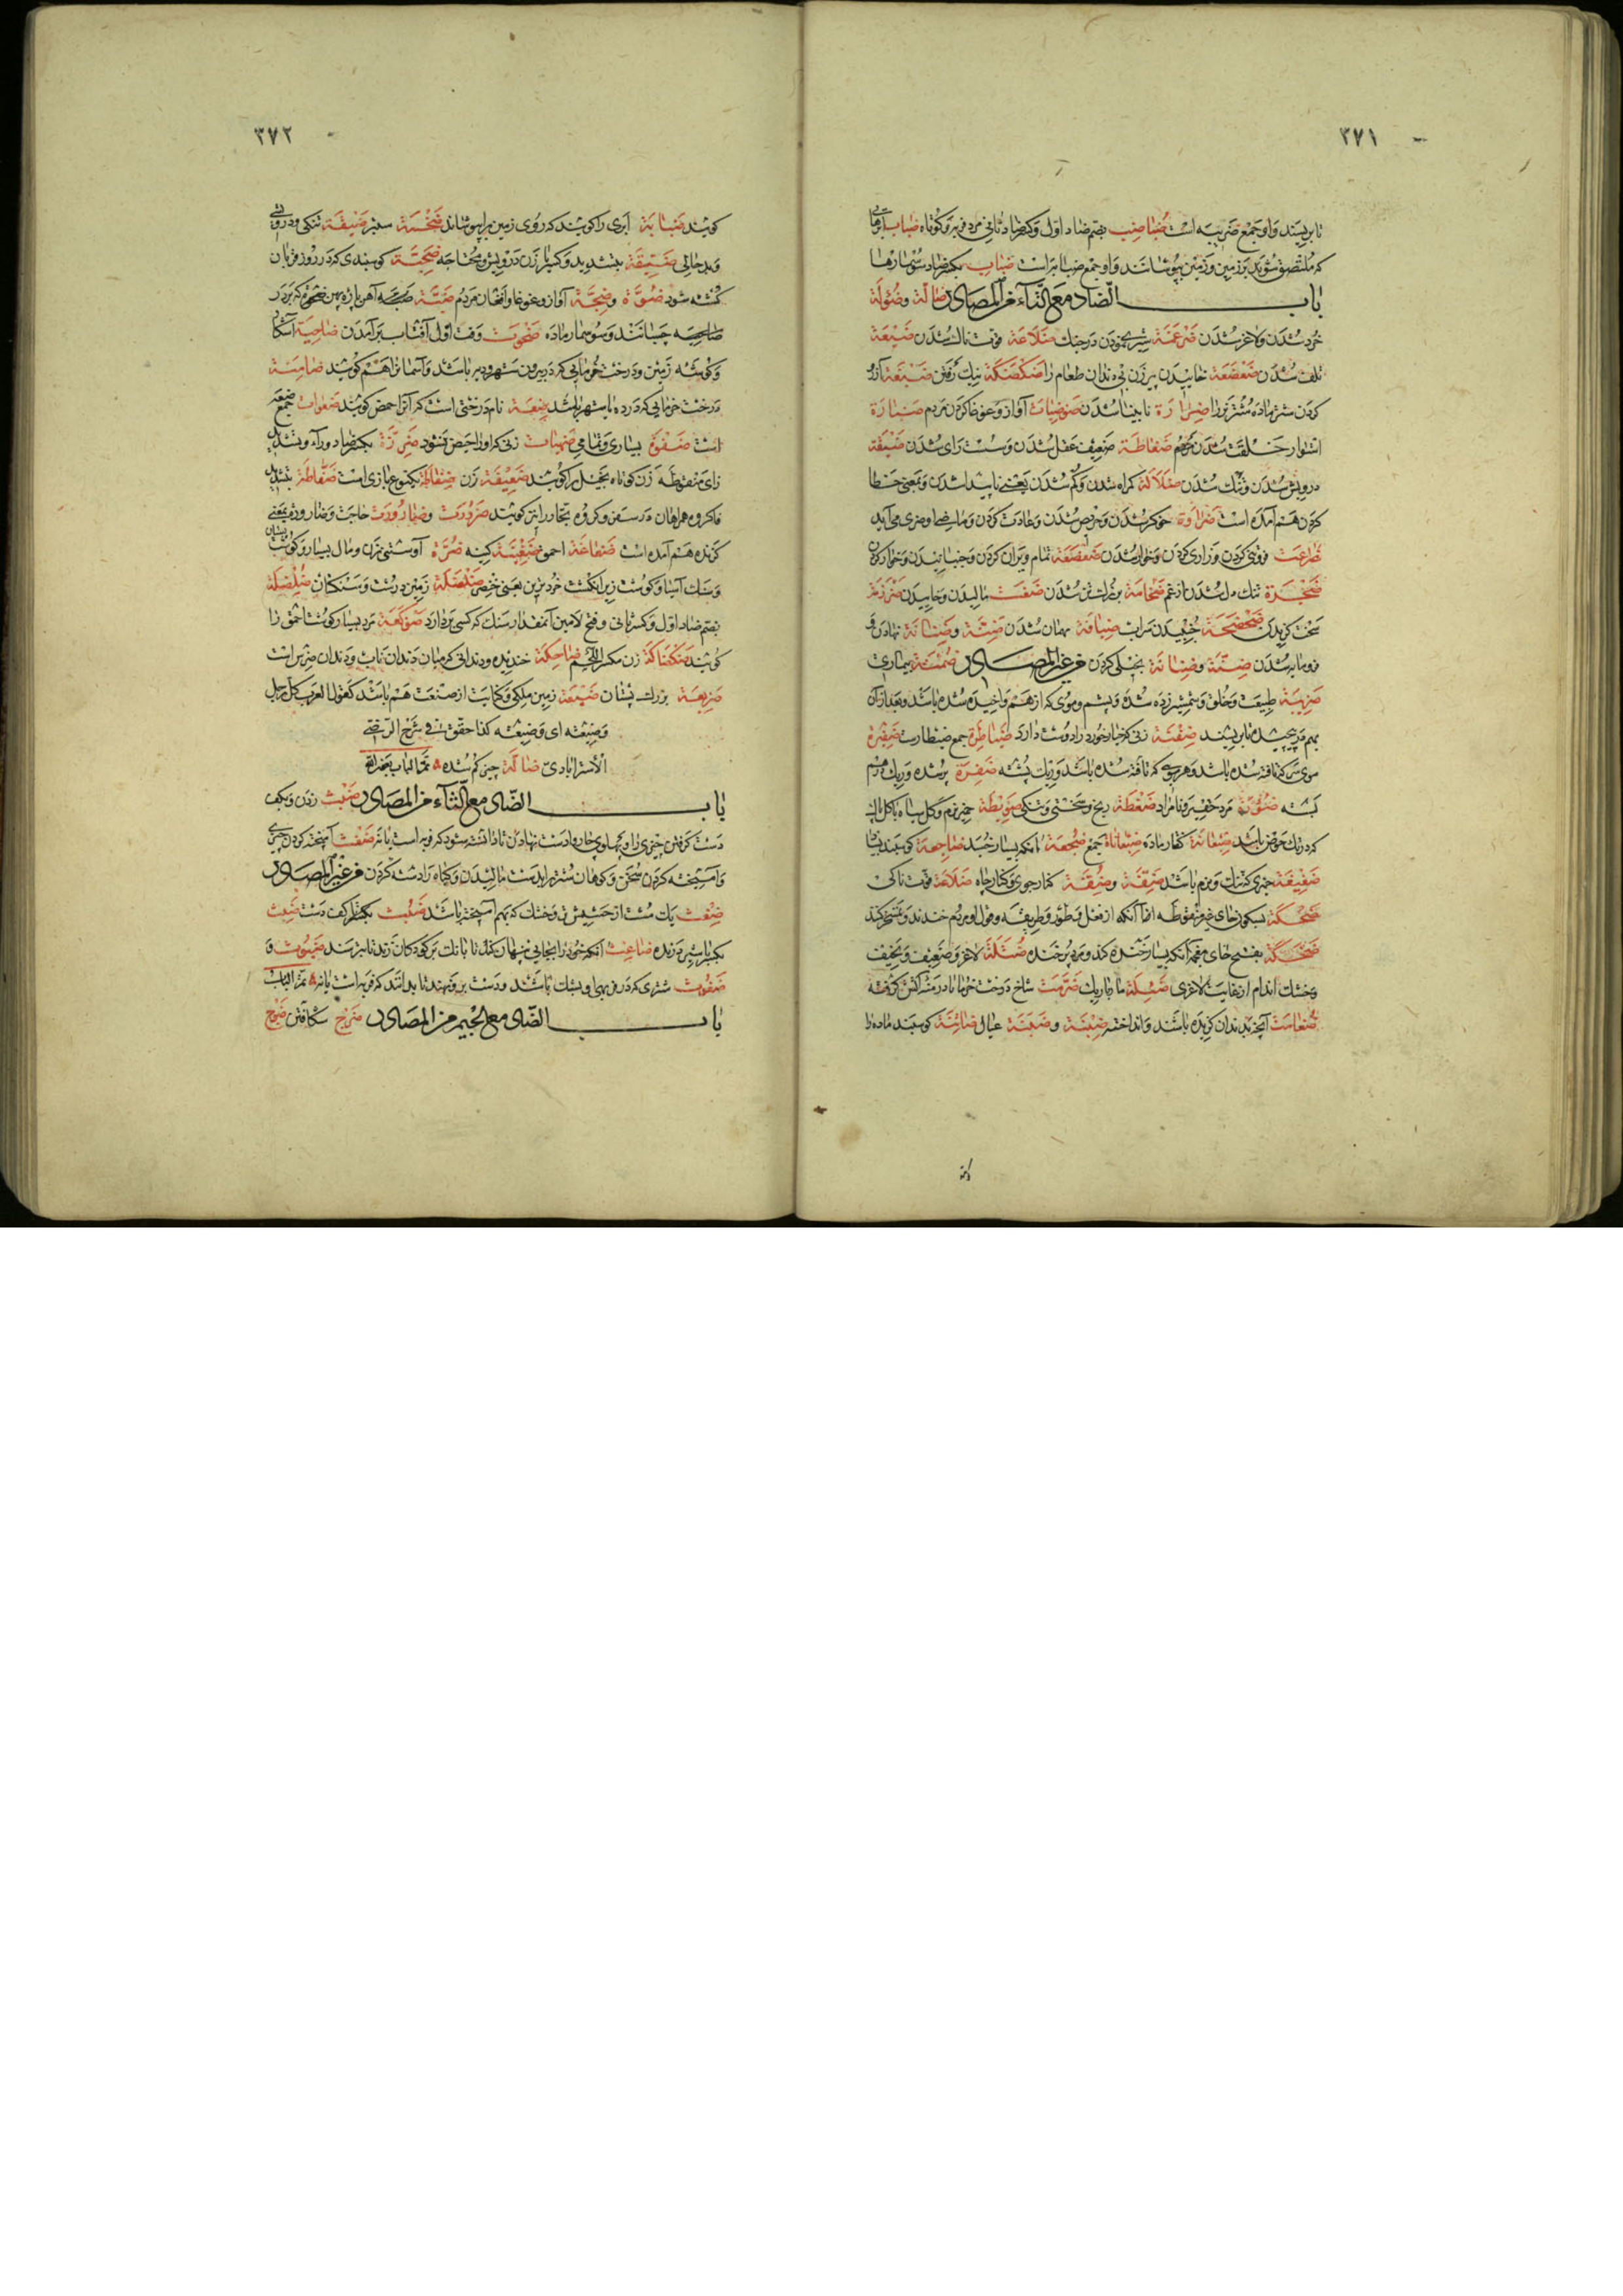 ٣٧١
تا بریسند و او جمع ضریبه است ضباضب بضم ضاد اول و کسر ضاد ثانی مرد فربه و کوتاه ضباب ابرهائی
که ملتصق شوند بر زمین و زمین بپوشانند و او جمع ضبابه است ضباب بکسر ضاد سوسمارها
باب الضاد مع التاء من المصادر ضآلة و ضؤلة
خرد شدن و لاغر شدن ضرغمة شیری نمودن در جنک ضلاعة قوتناک شدن ضیعة
تلف شدن ضعضعة خاییدن پیر زن بی دندان طعام را ضکضکة نیک رفتن ضبعة آرزو
کردن شتر ماده شتر نر را ضرارة نابینا شدن ضوضات آواز و غوغا کردن مردم ضبارة
استوار خلقت شدن مردم ضفاطة ضعیف عقل شدن و سست رای شدن ضیقة
درویش شدن و تنک شدن ضلالة کمراه شدن و کم شدن یعنی ناپیدا شدن و بمعنی خطا
کردن هم آمده است ضراوة خوکر شدن و حریص شدن و عادت کردن
ضراعت فروتنی کردن و زاری کردن و خوار شدن ضعضعة تمام ویران کردن و جنبانیدن و خوار کردن
ضجرة تنک دل شدن از غم ضخامة بزرک تن شدن ضغت مالیدن و خاییدن ضرزمة
سخت کزیدن ضحضحة جنبیدن سراب ضیافة مهمان شدن ضنة و ضنانة
فرومایه شدن ضنة و ضنانة بخیلی کردن من غیر المصادر ضمنة بیماری
ضریبة طبیعت و خلق و شمشیر زده شده و پشم و موی که از هم واخیده شده باشد و بعد از آن
بهم درپیچیده تا بریسند ضفنة
موی سر که تافته شده باشد و هر موی که تافته شده باشد و ریک پشته ضفرة
پشته مرد حقیر و نامراد ضغطة رنج و سختی و تنکی ضویطة خمیر نرم و کل سیاه با کل پاک
که در تک حوض باشد ضبعانة کفتار ماده ضبعانات جمع ضجعة آنکه بسیار خسبد ضاجعة
ضغیغة چیزی که تنک و نرم باشد ضفة و ضفة کنار جوی و کنار چاه ضلاعة قوت ناکی
ضحکة بسکون حای غیر منقوطه آنکه از فعل و طور و طریقه و قول او مردم خندند و تمسخر کنند
ضحکة بفتح حای مهمله آنکه بسیار خنده کند و مرد پر خنده ضئلة لاغر و ضعیف و نحیف
و خشک اندام از غایت لاغری ضئیلة مار باریک ضرمت شاخ درخت خرما تا در سرش آتش کرفته
ضغاست آنچه بدندان کزیده باشند و انداخته ضبنة و ضبنة عیال ضائنة کوسپند ماده را
٣٧٢
کویند ضبابة ابری را کویند که روی زمین را بپوشاند ضخمة ستبر ضیقة تنکی و درویشی
و بدحالی ضیقة بتشدید و کسر یا زن درویش و محتاجه ضحیة کوسپندی که در روز قربان
کشته شود ضوة و ضجة آواز و غوغا و افغان مردم ضبة آهن پاره پهن که بر در
چسبانند و سوسمار ماده ضحوت وقت اول آفتاب برآمدن ضاحیة آشکارا
و کوشه زمین و درخت خرمایی که در بیرون شهر و دیه باشد و آسمانرا هم کویند ضامنة
درخت خرمایی که در ده یا شهر باشد ضعة نام درختی است که آنرا حمض کویند ضعوات جمع ضعه
است ضفوة بسیاری و تمامی ضهیات زنی که او را حیض نشود ضرزة بکسر ضاد و راء و تشدید
زای منقوطه زن کوتاه بخیل را کویند ضعیفة زن ضفاطة یکنوع بازی است ضفاطة بتشدید
فا کروه همراهان در سفر و کروه تجار را نیز کویند ضرورت و ضارورت حاجت و ضارورة بمعنی
کزنده هم آمده است ضفاعة احمق ضغینة کینه ضرة آوسنی زن و مال بسیار و کوشت پستان
و سنک آسیا و کوشت زیر انکشت خردترین یعنی خنصر ضلضلة زمین درشت و سنکستان ضلضلة
بضم ضاد اول و کسر ثانی و فتح لامین آنمقدار سنک که کسی بردارد ضوکعة مرد بسیار کوشت احمق را
کویند ضکضاکة زن ضاحکة خندیده و دندانی که میان دندان ناب و دندان ضرس است
ضریعة بزرک پستان ضیعة زمین ملکی و کنایت از صنعت هم باشد کقول العرب کل رجل
و ضیعته ای و ضیعته کذا حققه فی شرح الرضی
الاسترابادی ضالة چیز کم شده تمّ الباب بعونه
باب الضاد مع الثاء من المصادر ضبث زدن و بکف
دست کرفتن چیزی را و پهلوی چاروا دست نهادن تا دانسته شود که فربه است یا نه ضغث آمیخته کردن چیزی
و آمیخته کردن سخن و کوهان شتر را بدست مالیدن و کیاه را دسته کردن من غیر المصادر
ضغث یک مشت از حشیش تر و خشک که بهم آمیخته باشد ضبث کف دست ضبث
بکسر با شیر درنده ضاغث آنکه خود را بجایی پنهان کند تا بانک بر کودکان زند تا بترسند ضبوث و
ضغوث شتری که در فربهی او بشک باشند و دست بر و نهند تا بدانند که فربه است یا نه تمّ الباب
باب الضاد مع الجیم من المصادر ضرج شکافتن ضجج